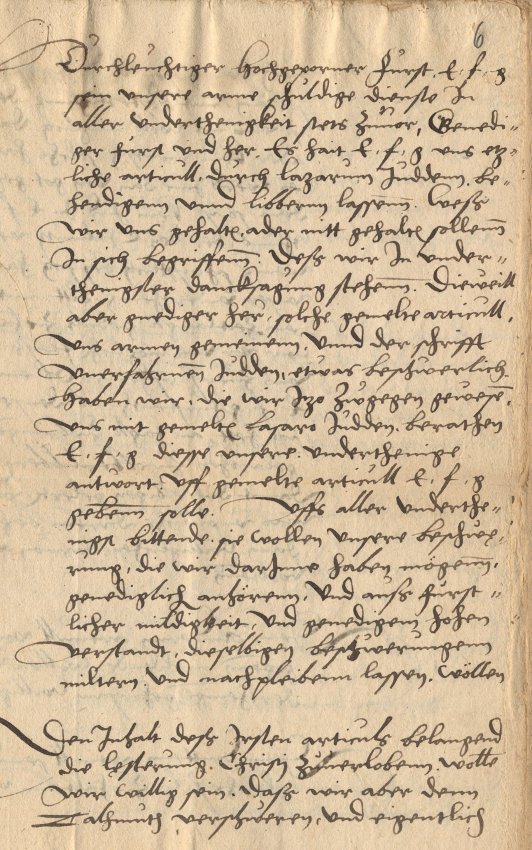 6
Durchleuchtiger Hochgeporner Furst, E. f. g
sein unsere arme schuldige dienste In
aller underthenigkeit stets Zuuor, Genedi-
ger furst und her, Es hait E. f. g uns etz-
liche articull, durch Lazarum Judden, be-
hendigenn unnd libbernn lassenn. Weß
wir uns gehalten, ader nitt gehalten sollenn
In sich begriffenn. Deß wir In under-
thenigster dancksagung stehenn. Dieweill
aber gnediger her, solche gemelte articull,
uns armen gemeinenn, unnd der schrifft
unerfahrnenn Judden, etwas beschwerlich
Haben wir, die wir Itzo Zugegen gewesen,
uns mit gemelten Lasaro Judden, berathen
E. f. g diesse unsere underthenige
antwort, uff gemelte articull E. f. g
gebenn solle. Uffs aller underthe-
nigst bittende, sie wollen unsere beschwe-
rung, die wir darInne haben mögenn,
genediglich anhörenn, Und auß furst-
licher mildigkeit, Und genedigem hohen
verstandt, dieselbigen beschwerungenn
miltern, Und nachpleibenn lassen, wöllen
Den Inhalt deß Irsten articuls belangend
die lesterung Christi Zuuerlobenn, wolle
wir willig sein, Daß wir aber denn
Talmuth verschweren, und eigentlich